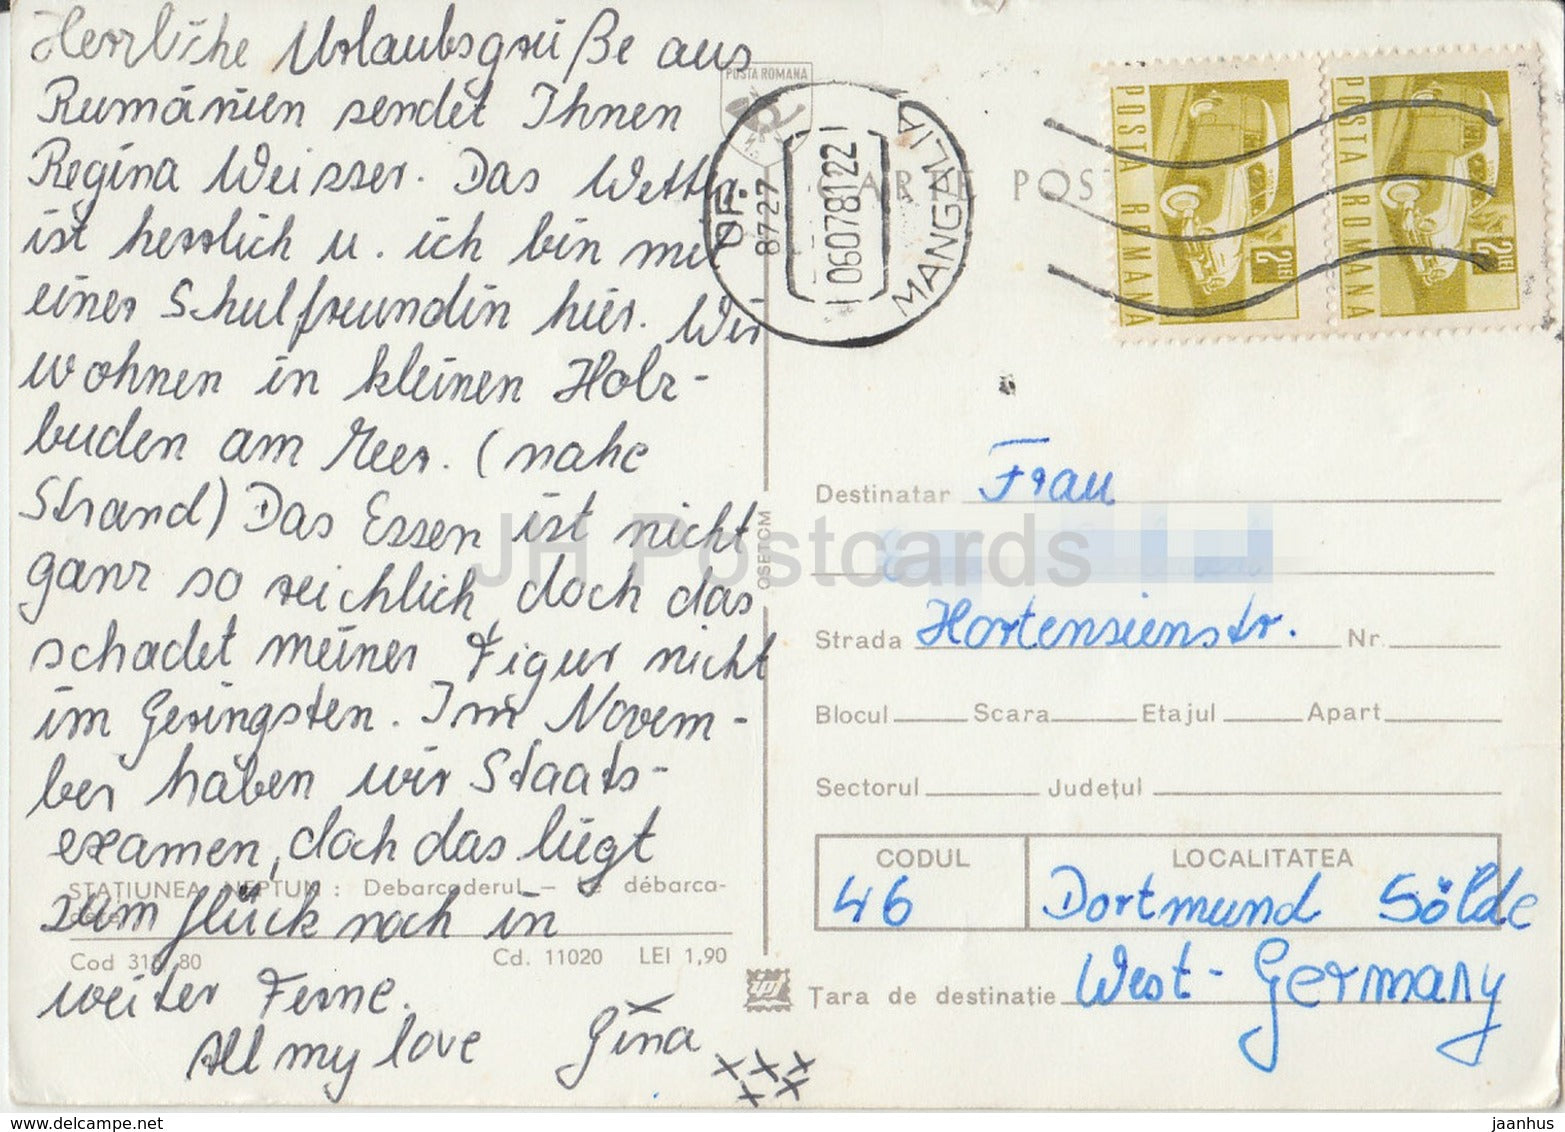 Herrliche Urlaubsgrüße aus
Rumänien sendet Ihnen
Regina Weisser. Das Wetter
ist herrlich u. ich bin mit
einer Schulfreundin hier. Wir
wohnen in kleinen Holz-
buden am Meer. (nahe
Strand) Das Essen ist nicht
ganz so reichlich doch das
schadet meiner Figur nicht
im Geringsten. Im Novem-
ber haben wir Staats-
examen, doch das liegt
zum Glück noch in
weiter Ferne.
All my love Gina
xxxxx
STAȚIUNEA NEPTUN : Debarcaderul – Le débarca-
Cod 80
Cd. 11020 LEI 1,90
OSETCM
POSTA ROMANA
CARTE POS
OF.
8727
06078122
MANGALIA
POSTA ROMANA
2 LEI
POSTA ROMANA
2 LEI
Destinatar Frau
Strada Hortensienstr. Nr.
Blocul Scara Etajul Apart
Sectorul Județul
CODUL LOCALITATEA
46 Dortmund Sölde
Țara de destinație West-Germany
JH Postcards
hipPostcard.com jaanhus